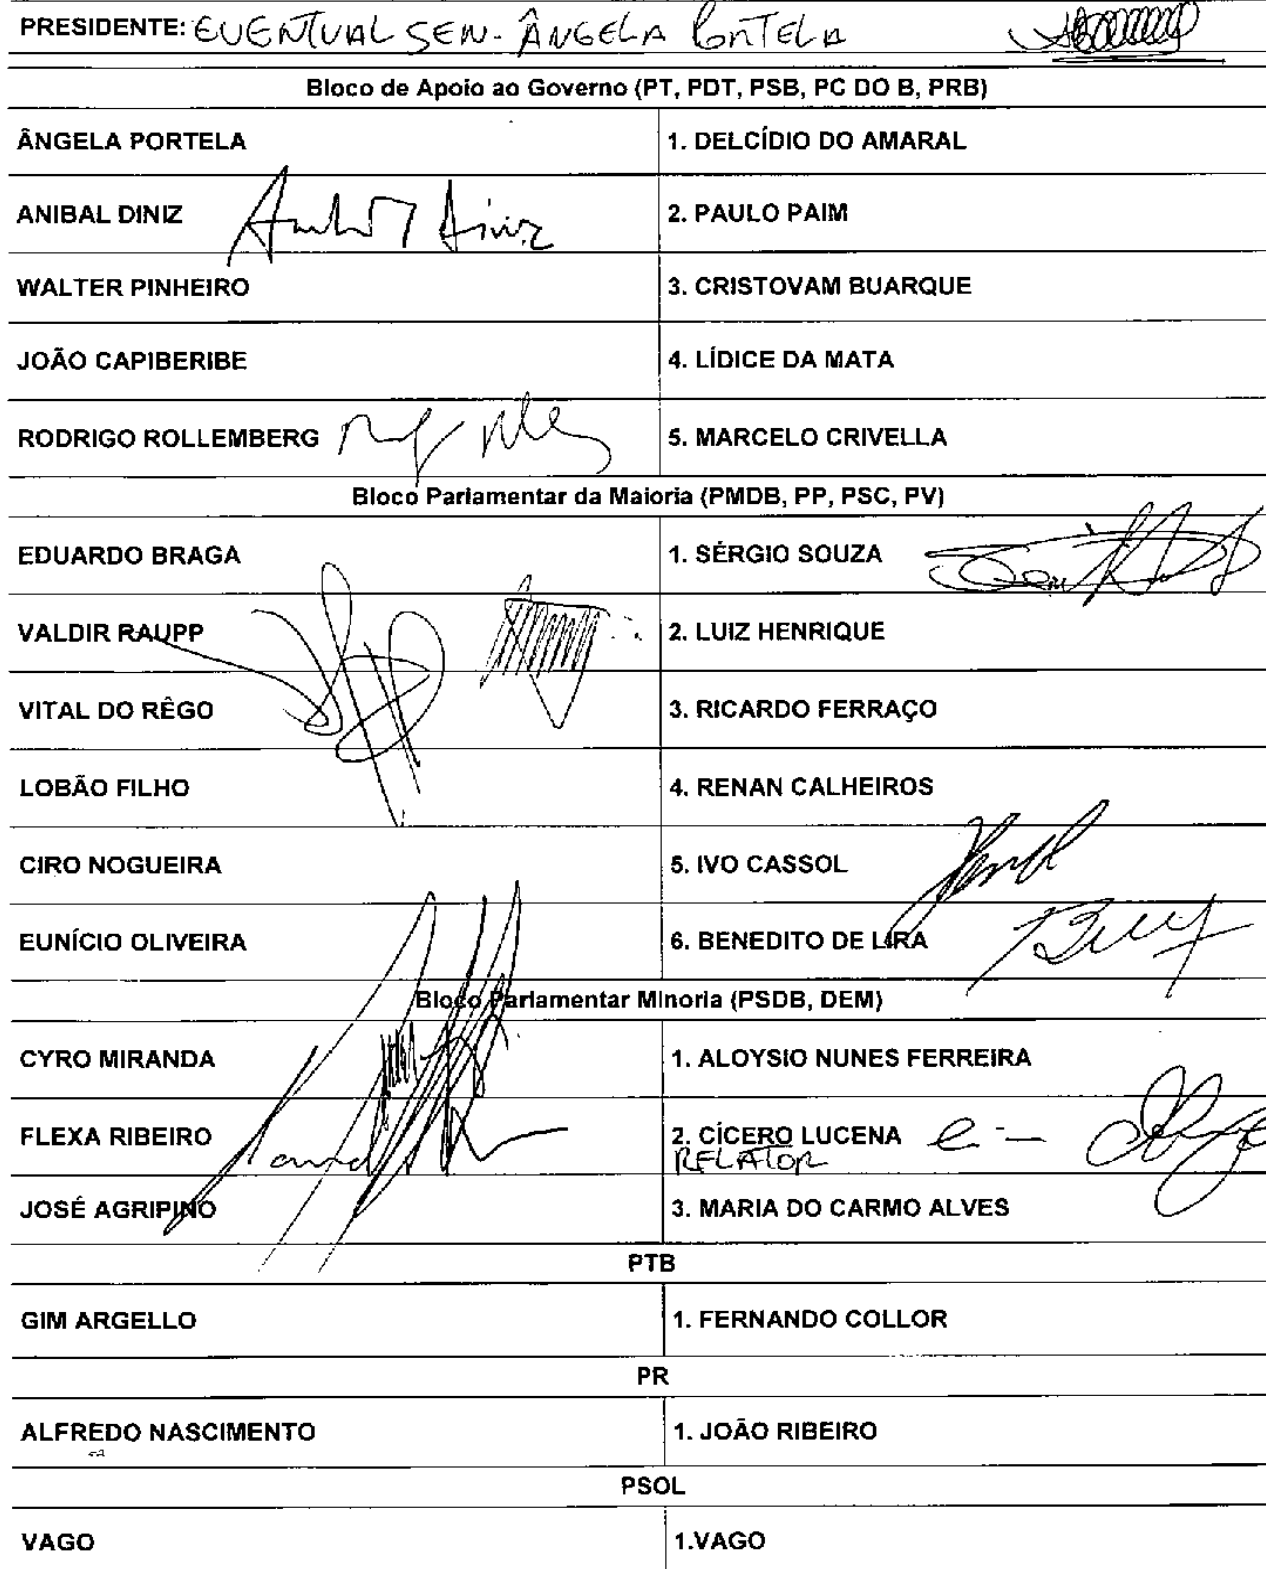 PRESIDENTE: EVENTUAL SEN. ÂNGELA PORTELA
Bloco de Apoio ao Governo (PT, PDT, PSB, PC DO B, PRB)
ÂNGELA PORTELA 1. DELCÍDIO DO AMARAL
ANIBAL DINIZ Anibal Diniz 2. PAULO PAIM
WALTER PINHEIRO 3. CRISTOVAM BUARQUE
JOÃO CAPIBERIBE 4. LÍDICE DA MATA
RODRIGO ROLLEMBERG 5. MARCELO CRIVELLA
Bloco Parlamentar da Maioria (PMDB, PP, PSC, PV)
EDUARDO BRAGA 1. SÉRGIO SOUZA
VALDIR RAUPP 2. LUIZ HENRIQUE
VITAL DO RÊGO 3. RICARDO FERRAÇO
LOBÃO FILHO 4. RENAN CALHEIROS
CIRO NOGUEIRA 5. IVO CASSOL
EUNÍCIO OLIVEIRA 6. BENEDITO DE LIRA
Bloco Parlamentar Minoria (PSDB, DEM)
CYRO MIRANDA 1. ALOYSIO NUNES FERREIRA
FLEXA RIBEIRO 2. CÍCERO LUCENA
RELATOR
JOSÉ AGRIPINO 3. MARIA DO CARMO ALVES
PTB
GIM ARGELLO 1. FERNANDO COLLOR
PR
ALFREDO NASCIMENTO 1. JOÃO RIBEIRO
PSOL
VAGO 1.VAGO